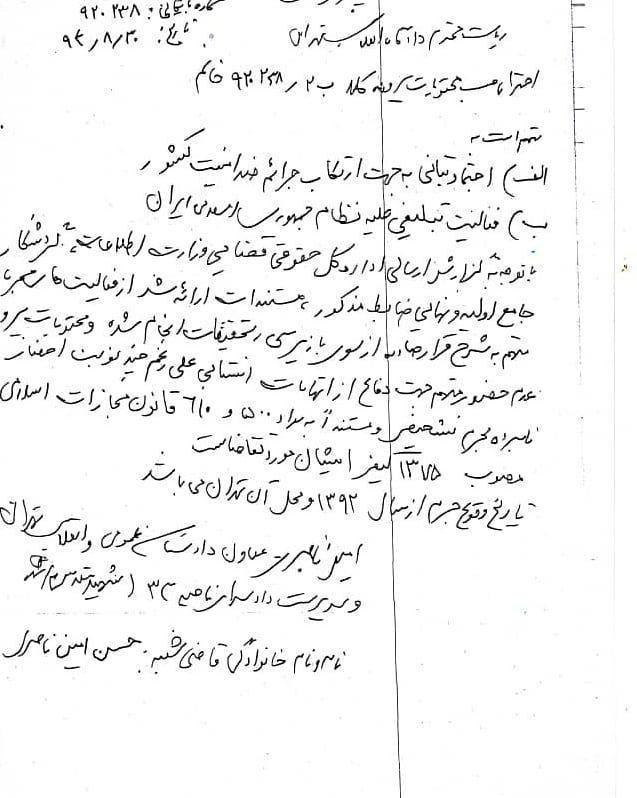 شماره بایگانی: ۹۲۰۲۳۸
تاریخ: ۹۴/۸/۳۰
ریاست محترم دادگاه انقلاب تهران
احتراما حسب محتویات پرونده کلاسه ب ۲/ ۹۲۰۲۳۸ خانم
متهم است به
الف) اجتماع و تبانی به جهت ارتکاب جرائم ضد امنیت کشور
ب) فعالیت تبلیغی علیه نظام جمهوری اسلامی ایران
با توجه به گزارش ارسالی اداره کل حقوقی قضایی وزارت اطلاعات، گردشکار
جامع اولیه و نهایی ضابط مذکور، مستندات ارائه شده از فعالیت
متهم به شرح قرار صادره از سوی بازپرسی و تحقیقات انجام شده و محتویات
عدم حضور متهم جهت دفاع از اتهامات انتسابی علی رغم چند نوبت احضار
نامبرده مجرم تشخیص و مستنداً به مواد ۵۰۰ و ۶۱۰ قانون مجازات اسلامی
مصوب ۱۳۷۵ کیفر ایشان مورد تقاضاست
تاریخ وقوع جرم از سال ۱۳۹۲ و محل آن تهران می باشد
معاون دادستان عمومی و انقلاب تهران
و سرپرست دادسرای ناحیه ۳۳ (شهید مقدس)
نام و نام خانوادگی قاضی شعبه: